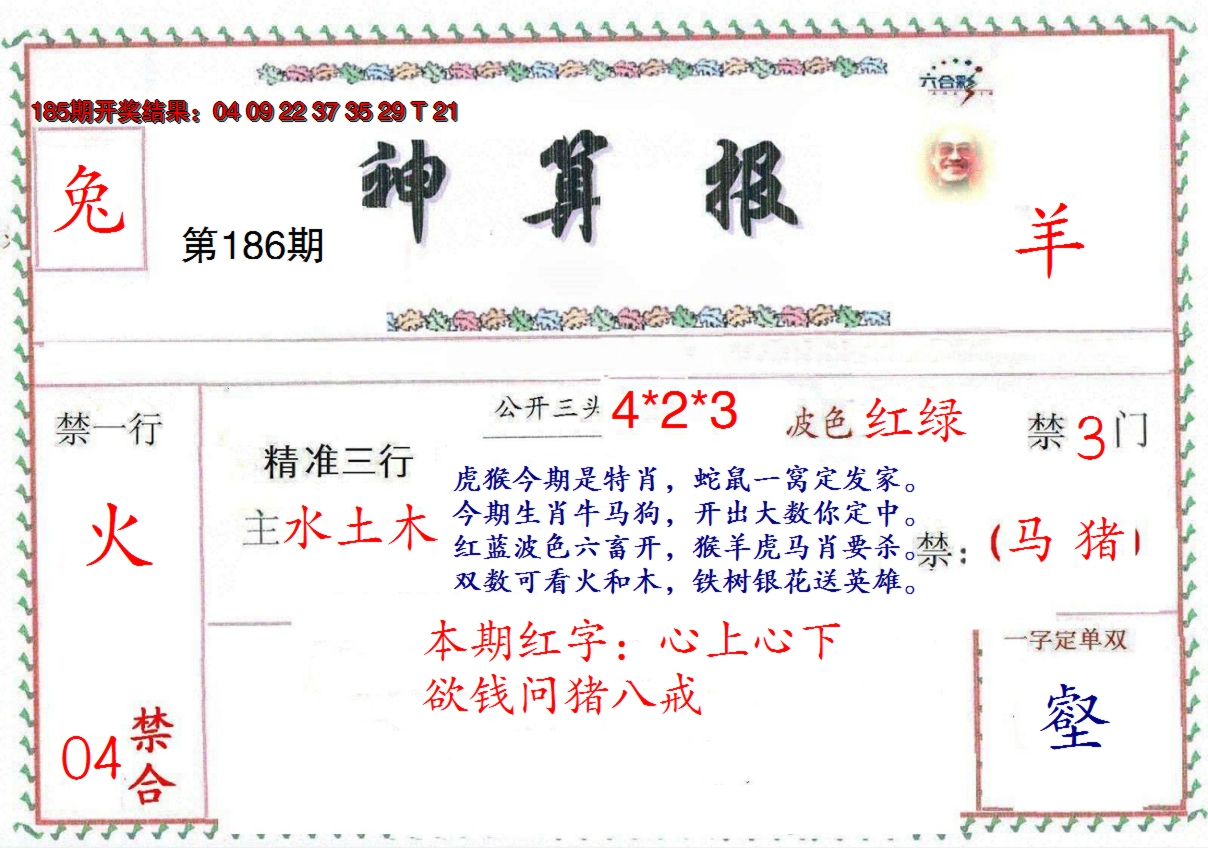 六合彩
185期开奖结果：04 09 22 37 35 29 T 21
神算报
兔
第186期
羊
禁一行
火
04
禁合
公开三头 4*2*3
波色 红绿
禁 3 门
精准三行
主水土木
虎猴今期是特肖，蛇鼠一窝定发家。
今期生肖牛马狗，开出大数你定中。
红蓝波色六畜开，猴羊虎马肖要杀。
双数可看火和木，铁树银花送英雄。
禁：（马 猪）
本期红字：心上心下
欲钱问猪八戒
一字定单双
壑